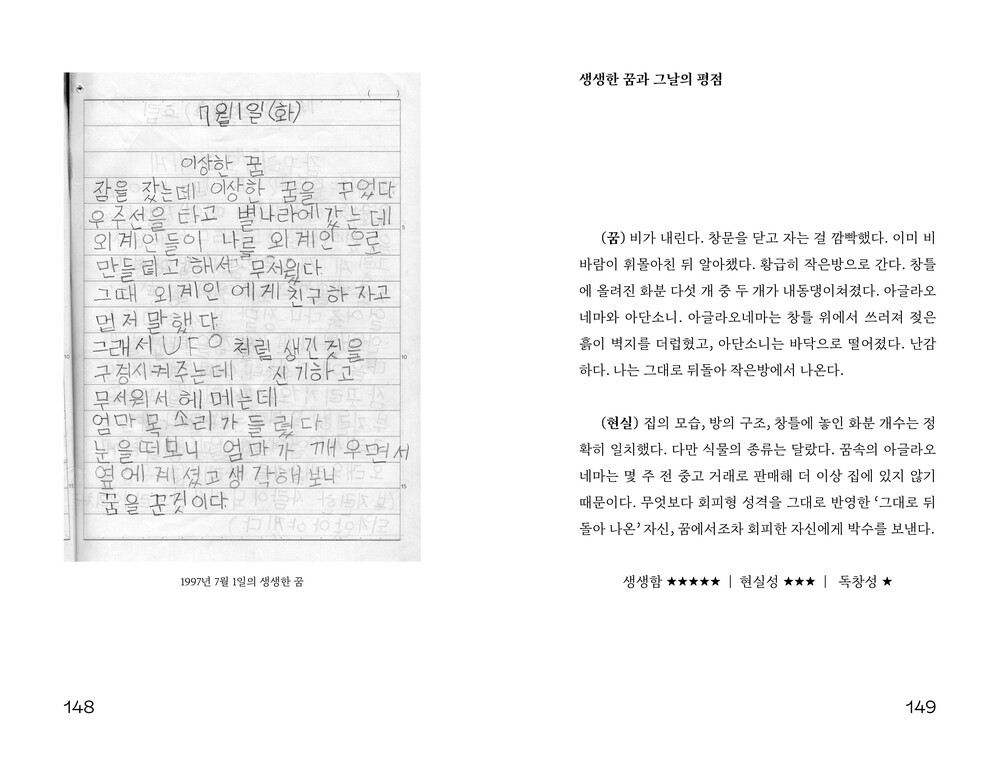 7월 1일 (화)
이상한 꿈
잠을 잤는데 이상한 꿈을 꾸었다
우주선을 타고 별나라에 갔는데
외계인들이 나를 외계인으로
만들려고 해서 무서웠다
그때 외계인에게 친구하자고
먼저 말했다.
그래서 UFO처럼 생긴것을
구경시켜주는데 신기하고
무서워서 헤메는데
엄마 목소리가 들렸다
눈을 떠보니 엄마가 깨우면서
옆에 계셨고 생각해보니
꿈을 꾼것이다.
1997년 7월 1일의 생생한 꿈
148
생생한 꿈과 그날의 평점
(꿈) 비가 내린다. 창문을 닫고 자는 걸 깜빡했다. 이미 비
바람이 휘몰아친 뒤 알아챘다. 황급히 작은방으로 간다. 창틀
에 올려진 화분 다섯 개 중 두 개가 내동댕이쳐졌다. 아글라오
네마와 아단소니. 아글라오네마는 창틀 위에서 쓰러져 젖은
흙이 벽지를 더럽혔고, 아단소니는 바닥으로 떨어졌다. 난감
하다. 나는 그대로 뒤돌아 작은방에서 나온다.
(현실) 집의 모습, 방의 구조, 창틀에 놓인 화분 개수는 정
확히 일치했다. 다만 식물의 종류는 달랐다. 꿈속의 아글라오
네마는 몇 주 전 중고 거래로 판매해 더 이상 집에 있지 않기
때문이다. 무엇보다 회피형 성격을 그대로 반영한 ‘그대로 뒤
돌아 나온’ 자신, 꿈에서조차 회피한 자신에게 박수를 보낸다.
생생함 ★★★★★ | 현실성 ★★★ | 독창성 ★
149